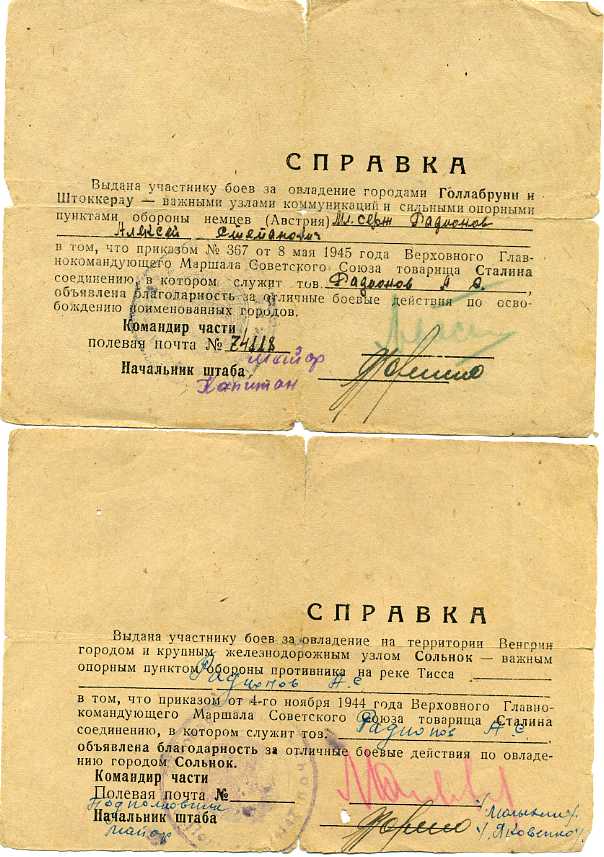 СПРАВКА
Выдана участнику боев за овладение городами Голлабрунн и
Штоккерау — важными узлами коммуникаций и сильными опорными
пунктами обороны немцев (Австрия) Мл. серж Радионов
Алексей Степанович
в том, что приказом № 367 от 8 мая 1945 года Верховного Глав-
нокомандующего Маршала Советского Союза товарища Сталина
соединению в котором служит тов. Радионов А С.,
объявлена благодарность за отличные боевые действия по осво-
бождению поименованных городов.
Командир части
полевая почта № 74118
майор
Начальник штаба
Капитан
СПРАВКА
Выдана участнику боев за овладение на территории Венгрии
городом и крупным железнодорожным узлом Сольнок — важным
опорным пунктом обороны противника на реке Тисса
Радионов А С
в том, что приказом от 4-го ноября 1944 года Верховного Главно-
командующего Маршала Советского Союза товарища Сталина
соединению, в котором служит тов. Радионов А С
объявлена благодарность за отличные боевые действия по овладе-
нию городом Сольнок.
Командир части
Полевая почта №
Подполковник
Начальник штаба
майор
/Малыкин/
/Яковенко/